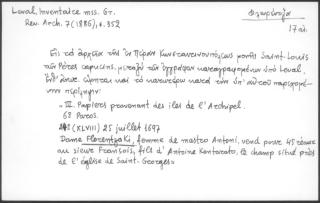 Laval, Inventaire mss. Gr.
Rev. Arch. 7 (1886), σ. 352
17 αι.
Εἰς τὰ ἀρχεῖα τῆς ἐν Πέραν Κωνσταντινουπόλεως μονῆς Saint-Louis
των Pères capucins, μεταξὺ τῶν ἐγγράφων καταγραφομένων ὑπὸ Laval,
καὶ τὸ κατωτέρω κατὰ τὴν ὑπ' αὐτοῦ παρεχομέ-
νην περίληψιν:
"IV. Papiers provenant des îles de l'Archipel.
68 Paros.
(XLVIII) 25 juillet 1697
Dame Florentzaki, femme de mastro Antoni, vend pour 45 réaux
au sieur François, fils d'Antoine Kontarato, le champ situé près
de l'église de Saint-Georges»